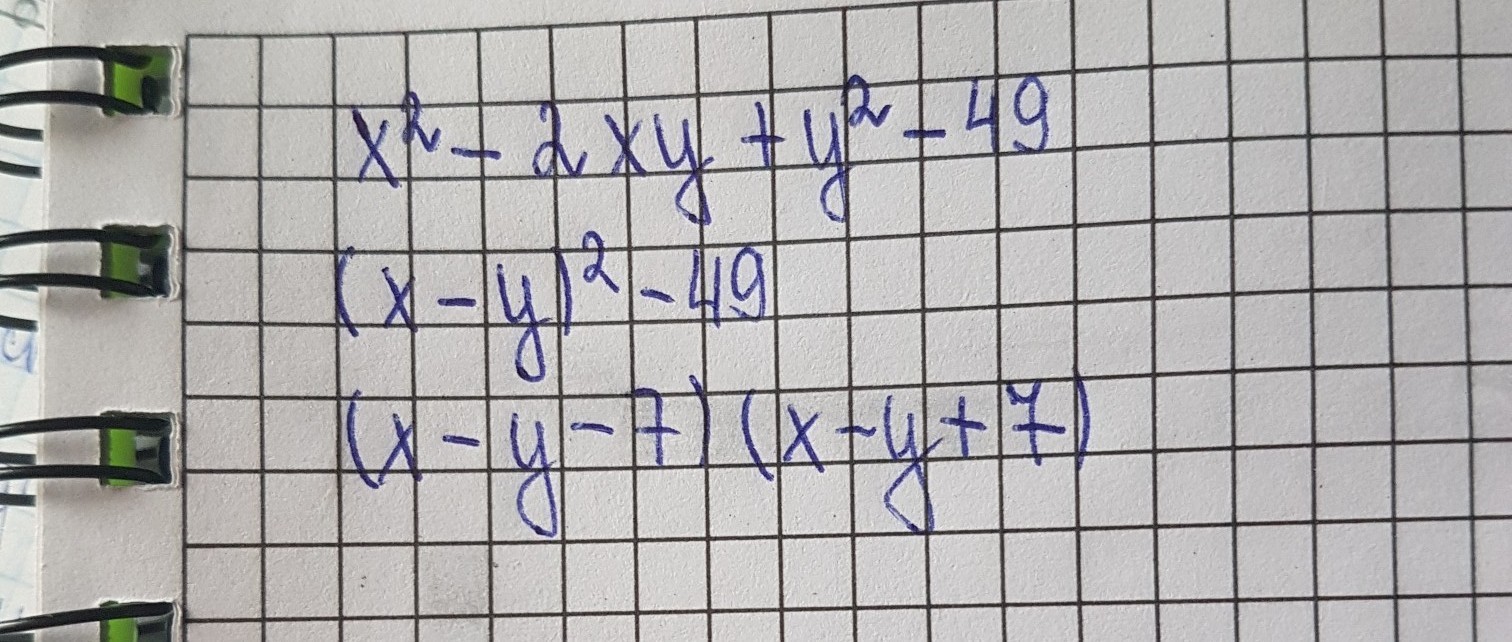 x² - 2xy + y² - 49
(x - y)² - 49
(x - y - 7)(x - y + 7)